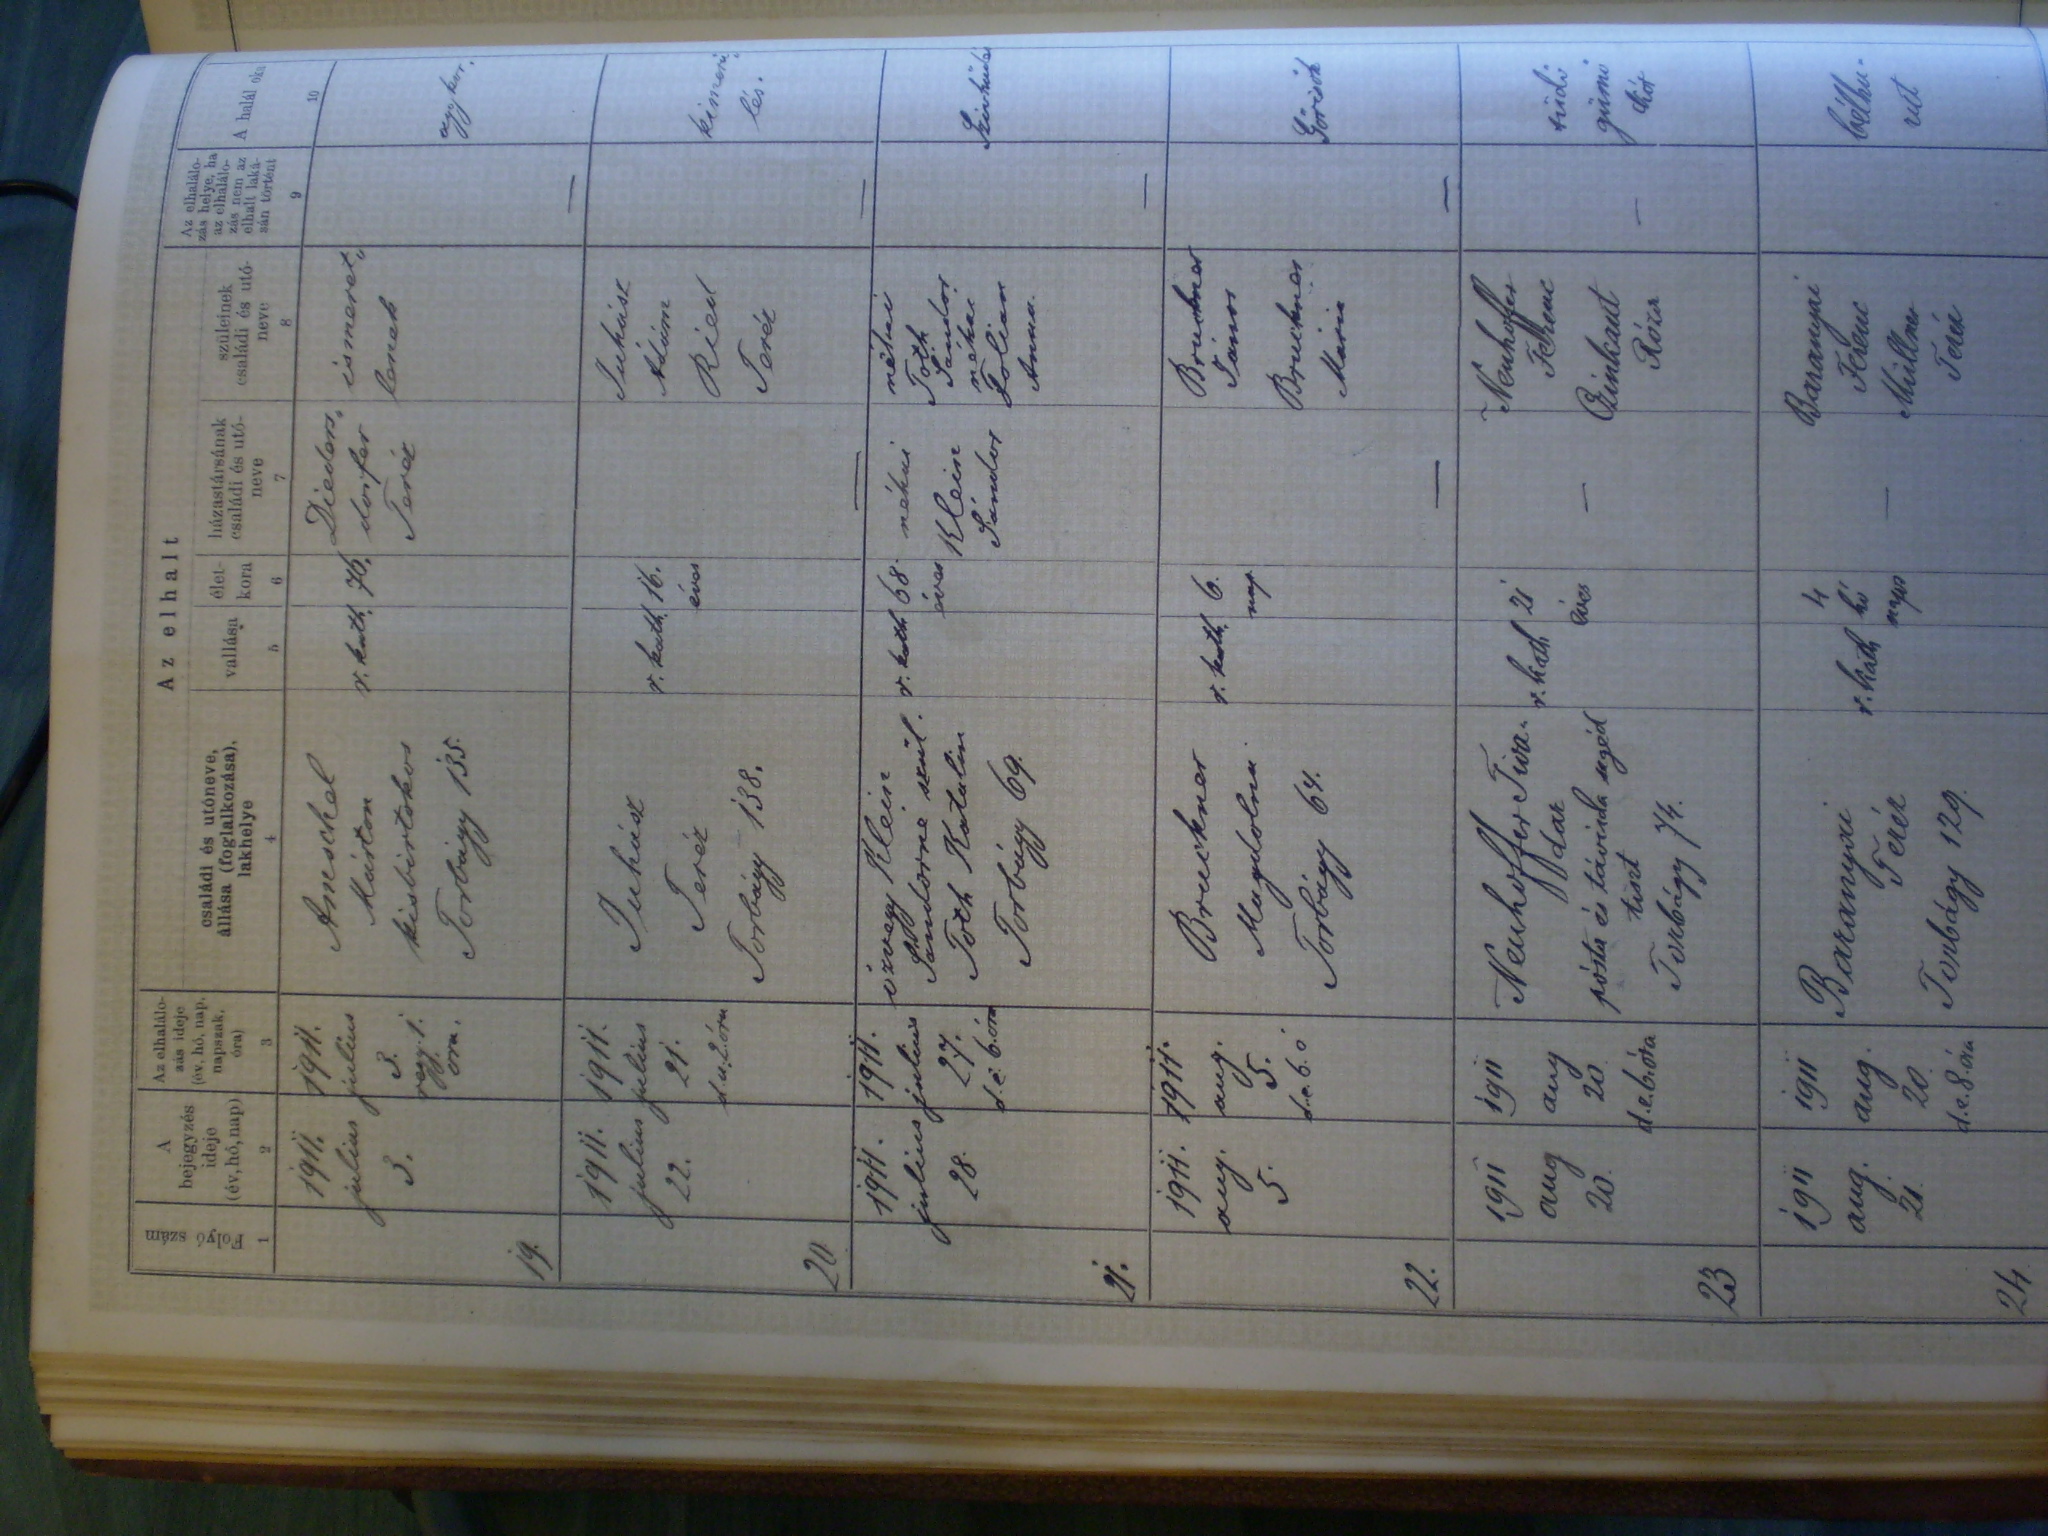 Az elhalt
Folyó-
szám
A
bejegyzés
ideje
(év, hó, nap)
Az elhalálo-
zás ideje
(év, hó, nap,
napszak,
óra)
családi és utóneve,
állása (foglalkozása),
lakhelye
vallása
élet-
kora
házastársának
családi és utó-
neve
szüleinek
családi és utó-
neve
Az elhalálo-
zás helye, ha
az elhalálo-
zás nem az
elhalt laká-
sán történt
A halál oka
1
2
3
4
5
6
7
8
9
10
19.
1911.
julius
3.
1911.
julius
3.
regg. 1.
óra.
Amschel
Márton
kisbirtokos
Torbágy 135.
r. kath.
76.
Dieders,
dorfer
Teréz
ismeret,
lenek
—
aggkor.
20
1911.
julius
22.
1911.
julius
21.
d.u. 2. óra
Juhász
Teréz
Torbágy 138.
r. kath.
16.
éves
—
Juhász
Ádám
Ried
Teréz
—
kimerü
lés.
21.
1911.
julius
28.
1911.
julius
27.
d.e. 6. óra
özvegy Klein
Sándorné szül.
Toth Katalin
Torbágy 69.
r. kath
68.
éves
néhai
Klein
Sándor
néhai
Toth
Sándor
néhai
Folian
Anna.
—
Szivhüdés
22.
1911.
aug.
5.
1911.
aug.
5.
d.e. 6. ó
Bruckner
Magdolna
Torbágy 64.
r. kath.
6.
nap.
—
Bruckner
János
Bruckner
Maria
—
Görcsök
23
1911
aug
20.
1911
aug
20.
d.e. 6. óra
Neuhoffer Tiva-
dar
pósta és távirda segéd
tiszt
Torbágy 74.
r. kath
21
éves
—
Neuhoffer
Ferenc
Czinkant
Róza
—
tüdő
gümő
kór
24.
1911
aug.
21.
1911
aug.
20.
d.e. 8. óra
Baranyai
Teréz
Torbágy 129.
r. kath
4
hó
napos
—
Baranyai
Ferenc
Millner
Teréz
bélhu-
rut